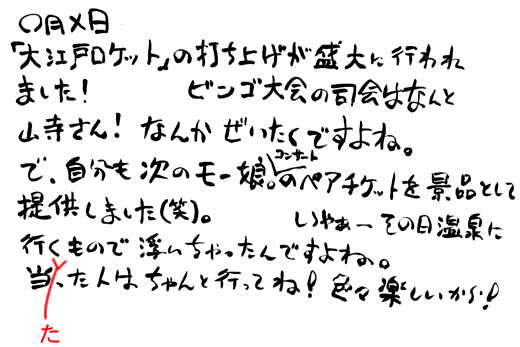 〇月×日
「大江戸ロケット」の打ち上げが盛大に行われ
ました！ ビンゴ大会の司会はなんと
山寺さん！なんかぜいたくですよね。
で、自分も次のモー娘。コンサートのペアチケットを景品として
提供しました(笑)。 いやぁーその日温泉に
行くもので浮いちゃったんですよね。
当った人はちゃんと行ってね！色々楽しいから！
た